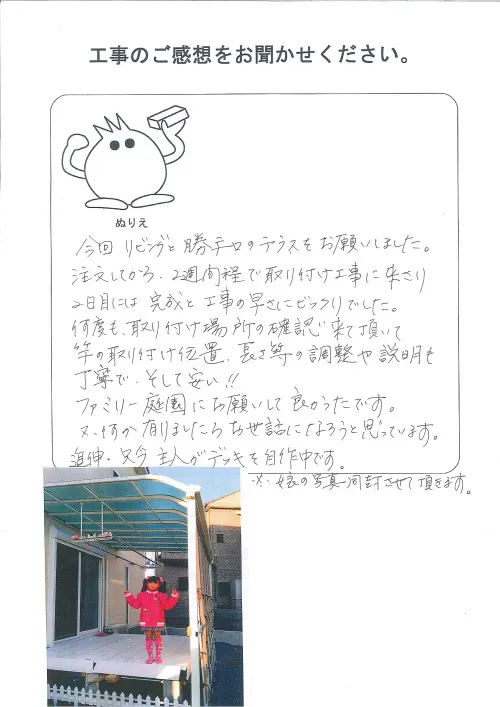 工事のご感想をお聞かせください。
ぬりえ
今回リビングと勝手口のテラスをお願いしました。
注文してから、2週間程で取り付け工事に来さり
2日目には完成と工事の早さにビックリでした。
何度も、取り付け場所の確認に来て頂いて
竿の取り付け位置、長さ等の調整や説明も
丁寧で、そして安い!!
ファミリー庭園にお願いして良かったです。
又、何か有りましたらお世話になろうと思っています。
追伸・只今主人がデッキを自作中です。
※・娘の写真同封させて頂きます。